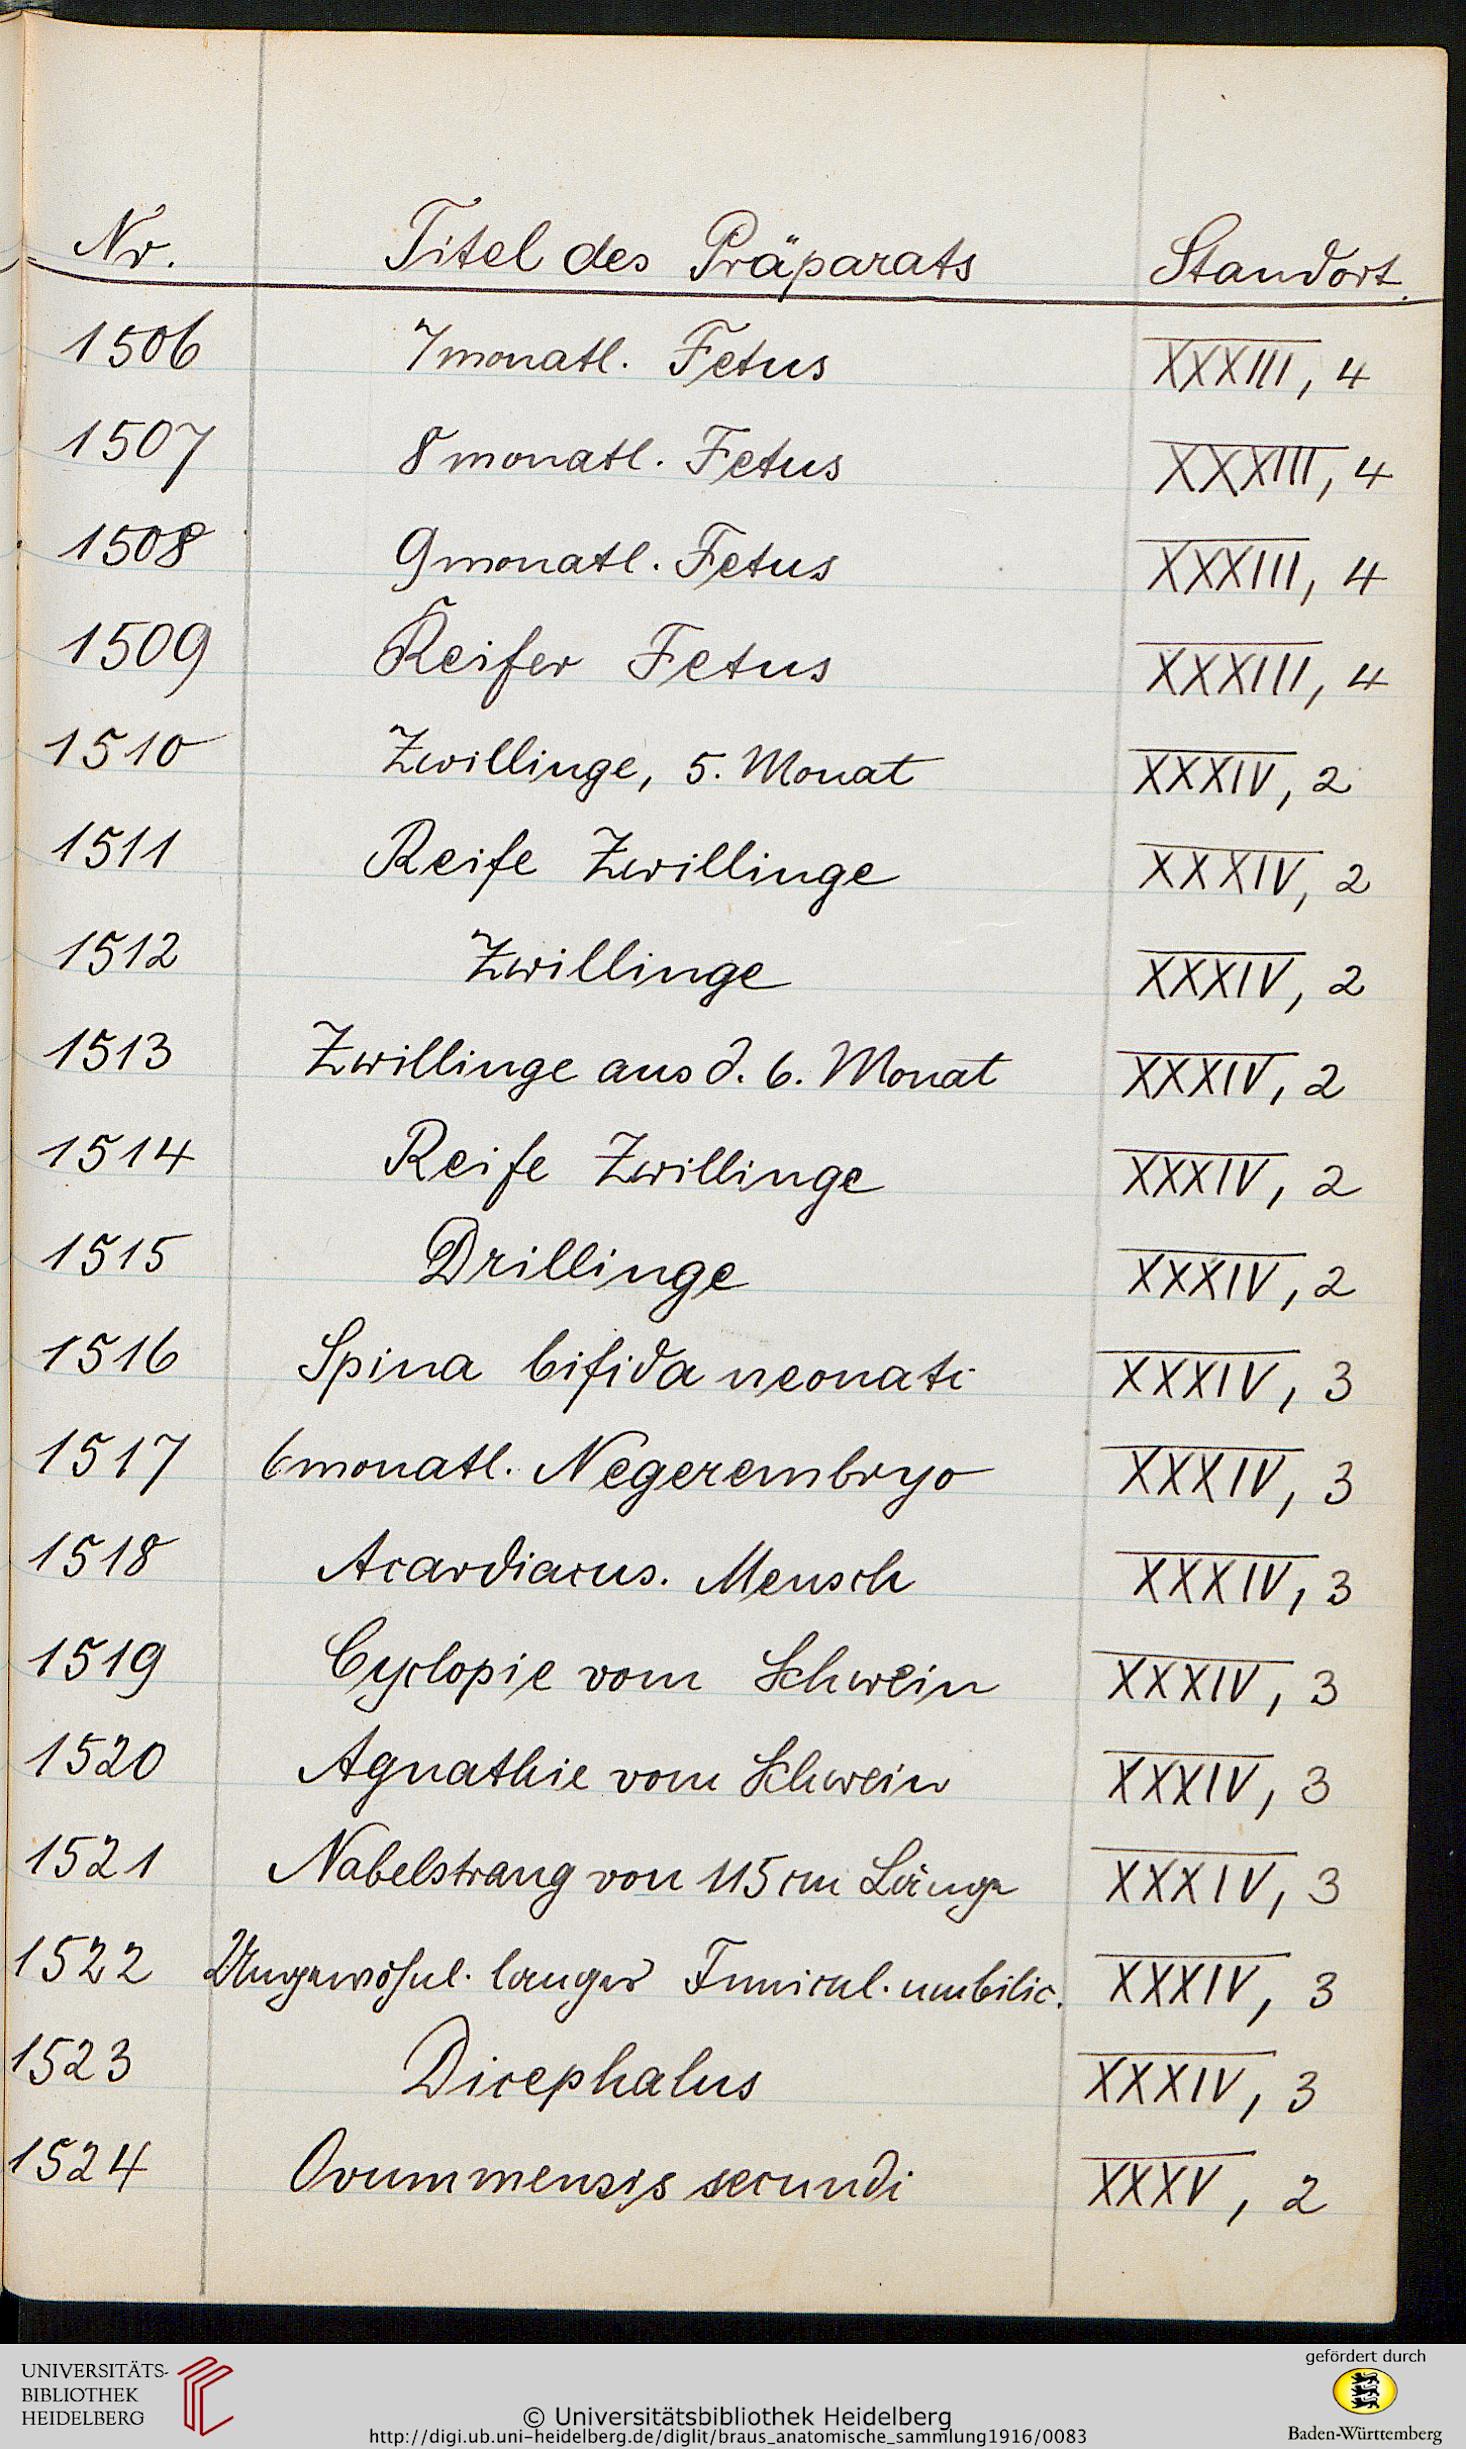 Nr. Titel des Präparats Standort.
1506 7monatl. Fetus XXXIII, 4
1507 8monatl. Fetus XXXIII, 4
1508 9monatl. Fetus XXXIII, 4
1509 Reifer Fetus XXXIII, 4
1510 Zwillinge, 5. Monat XXXIV, 2
1511 Reife Zwillinge XXXIV, 2
1512 Zwillinge XXXIV, 2
1513 Zwillinge aus d. 6. Monat XXXIV, 2
1514 Reife Zwillinge XXXIV, 2
1515 Drillinge XXXIV, 2
1516 Spina bifida neonati XXXIV, 3
1517 6monatl. Negerembryo XXXIV, 3
1518 Acardiacus. Mensch XXXIV, 3
1519 Cyclopie vom Schwein XXXIV, 3
1520 Agnathie vom Schwein XXXIV, 3
1521 Nabelstrang von 115 cm Länge XXXIV, 3
1522 Ungewöhnl. langer Funicul. umbilic. XXXIV, 3
1523 Dicephalus XXXIV, 3
1524 Ovum mensis secundi XXXV, 2
UNIVERSITÄTS-
BIBLIOTHEK
HEIDELBERG
© Universitätsbibliothek Heidelberg
http://digi.ub.uni-heidelberg.de/diglit/braus_anatomische_sammlung1916/0083
gefördert durch
Baden-Württemberg